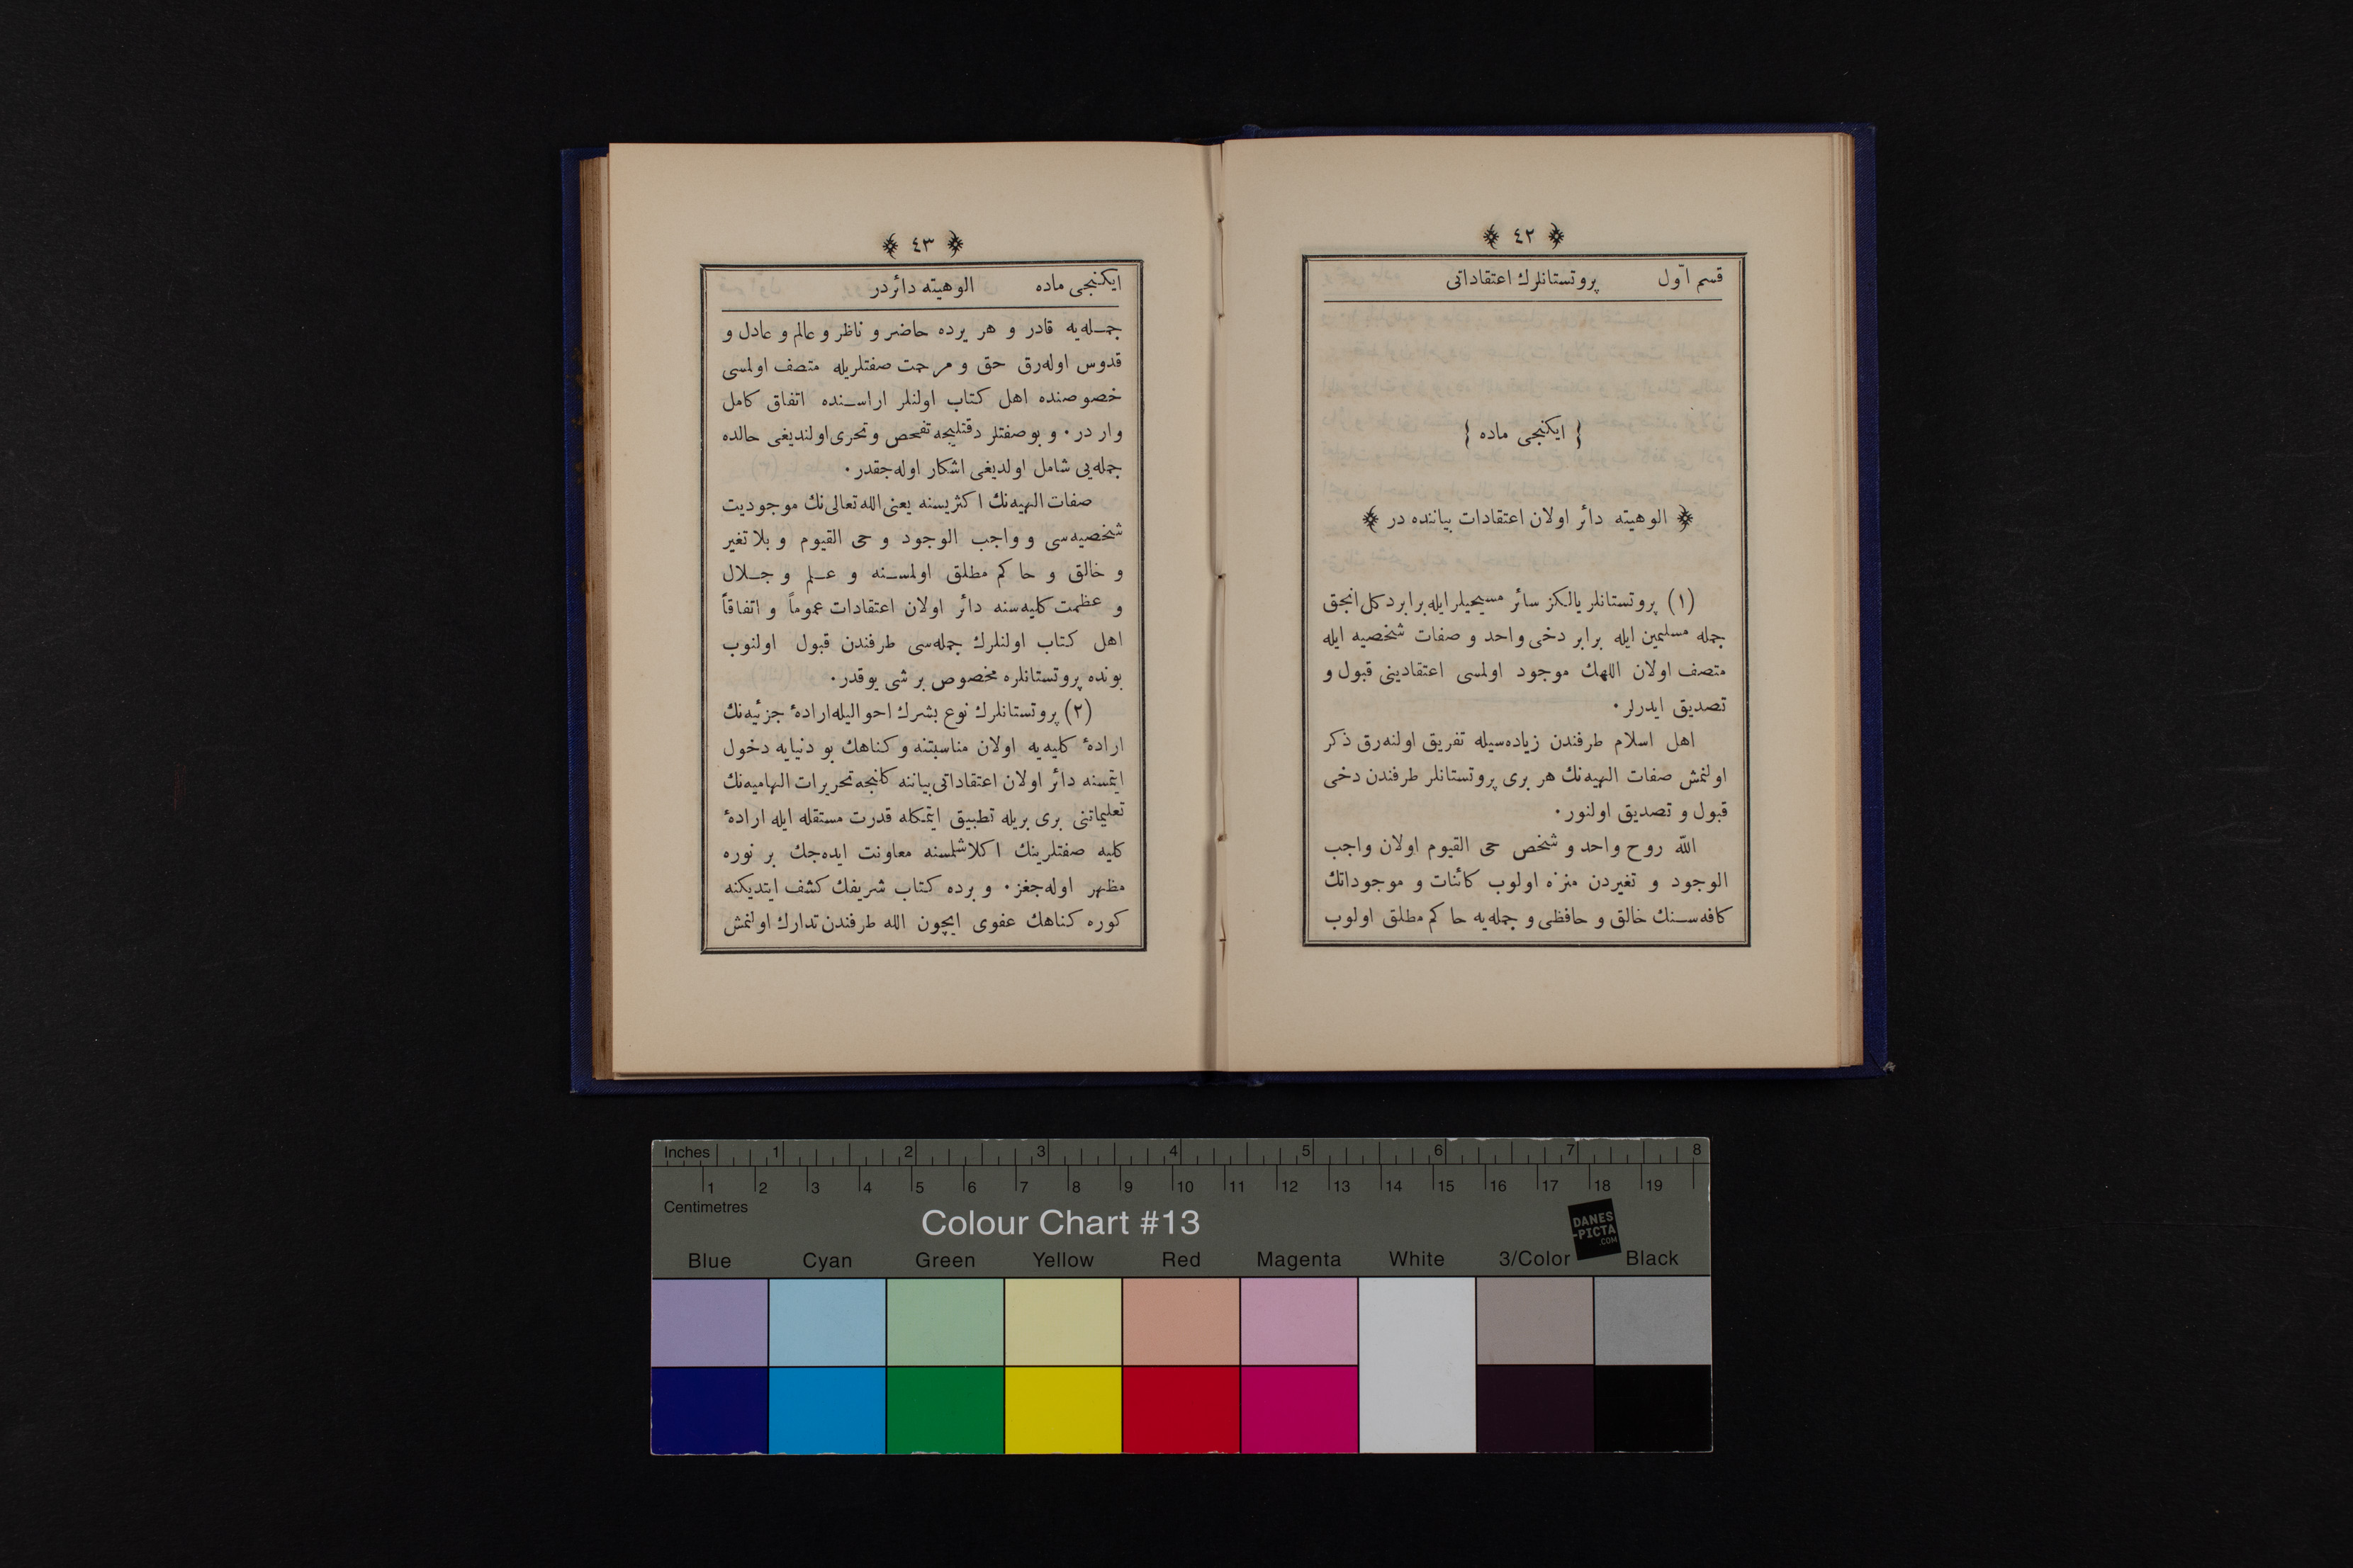 ﴿ ٤٢ ﴾
قسم اوّل پروتستانلرك اعتقاداتی
{ ایكنجی ماده }
﴿ الوهیته دائر اولان اعتقادات بیاننده در ﴾
(١) پروتستانلر یالكز سائر مسیحیلر ایله برابر دكل انجق
جمله مسلمین ایله برابر دخی واحد و صفات شخصیه ایله
متصف اولان اللهك موجود اولمسی اعتقادینی قبول و
تصدیق ایدرلر٠
اهل اسلام طرفندن زیاده‌سیله تفریق اولنه‌رق ذكر
اولنمش صفات الهیه‌نك هر بری پروتستانلر طرفندن دخی
قبول و تصدیق اولنور٠
الله روح واحد و شخص حی القیوم اولان واجب
الوجود و تغیردن منزه اولوب كائنات و موجوداتك
كافه‌سـنك خالق و حافظی و جمله‌یه حاكم مطلق اولوب
﴿ ٤٣ ﴾
ایكنجی ماده الوهیته دائردر
جمـله‌یه قادر و هر یرده حاضر و ناظر و عالم و عادل و
قدوس اوله‌رق حق و مرحمت صفتلریله متصف اولمسی
خصوصنده اهل كتاب اولنلر اراسـنده اتفاق كامل
وار در٠ و بو صفتلر دقتلیجه تفحص و تحری اولندیغی حالده
جمله‌یی شامل اولدیغی اشكار اوله‌جقدر٠
صفات الهیه‌نك اكثریسنه یعنی الله تعالی‌نك موجودیت
شخصیه‌سی و واجب الوجود و حی القیوم و بلا تغیر
و خالق و حاكم مطلق اولمسـنه و عـلم و جـلال
و عظمت كلیه‌سنه دائر اولان اعتقادات عموماً و اتفاقاً
اهل كتاب اولنلرك جمله‌سی طرفندن قبول اولنوب
بونده پروتستانلره مخصوص بر شی یوقدر٠
(٢) پروتستانلرك نوع بشرك احوالیله ارادهٔ جزئیه‌نك
ارادهٔ كلیه‌یه اولان مناسبتنه و كناهك بو دنیایه دخول
ایتمسنه دائر اولان اعتقاداتی بیاننه كلنجه تحریرات الهامیه‌نك
تعلیماتنی بری بریله تطبیق ایتمكله قدرت مستقله ایله ارادهٔ
كلیه صفتلرینك اكلاشلمسنه معاونت ایده‌جك بر نوره
مظهر اوله‌جغز٠ و برده كتاب شریفك كشف ایتدیكنه
كوره كناهك عفوی ایچون الله طرفندن تدارك اولنمش
Inches 1 2 3 4 5 6 7 8
1 2 3 4 5 6 7 8 9 10 11 12 13 14 15 16 17 18 19
Centimetres
Colour Chart #13
DANES
-PICTA
.COM
Blue Cyan Green Yellow Red Magenta White 3/Color Black